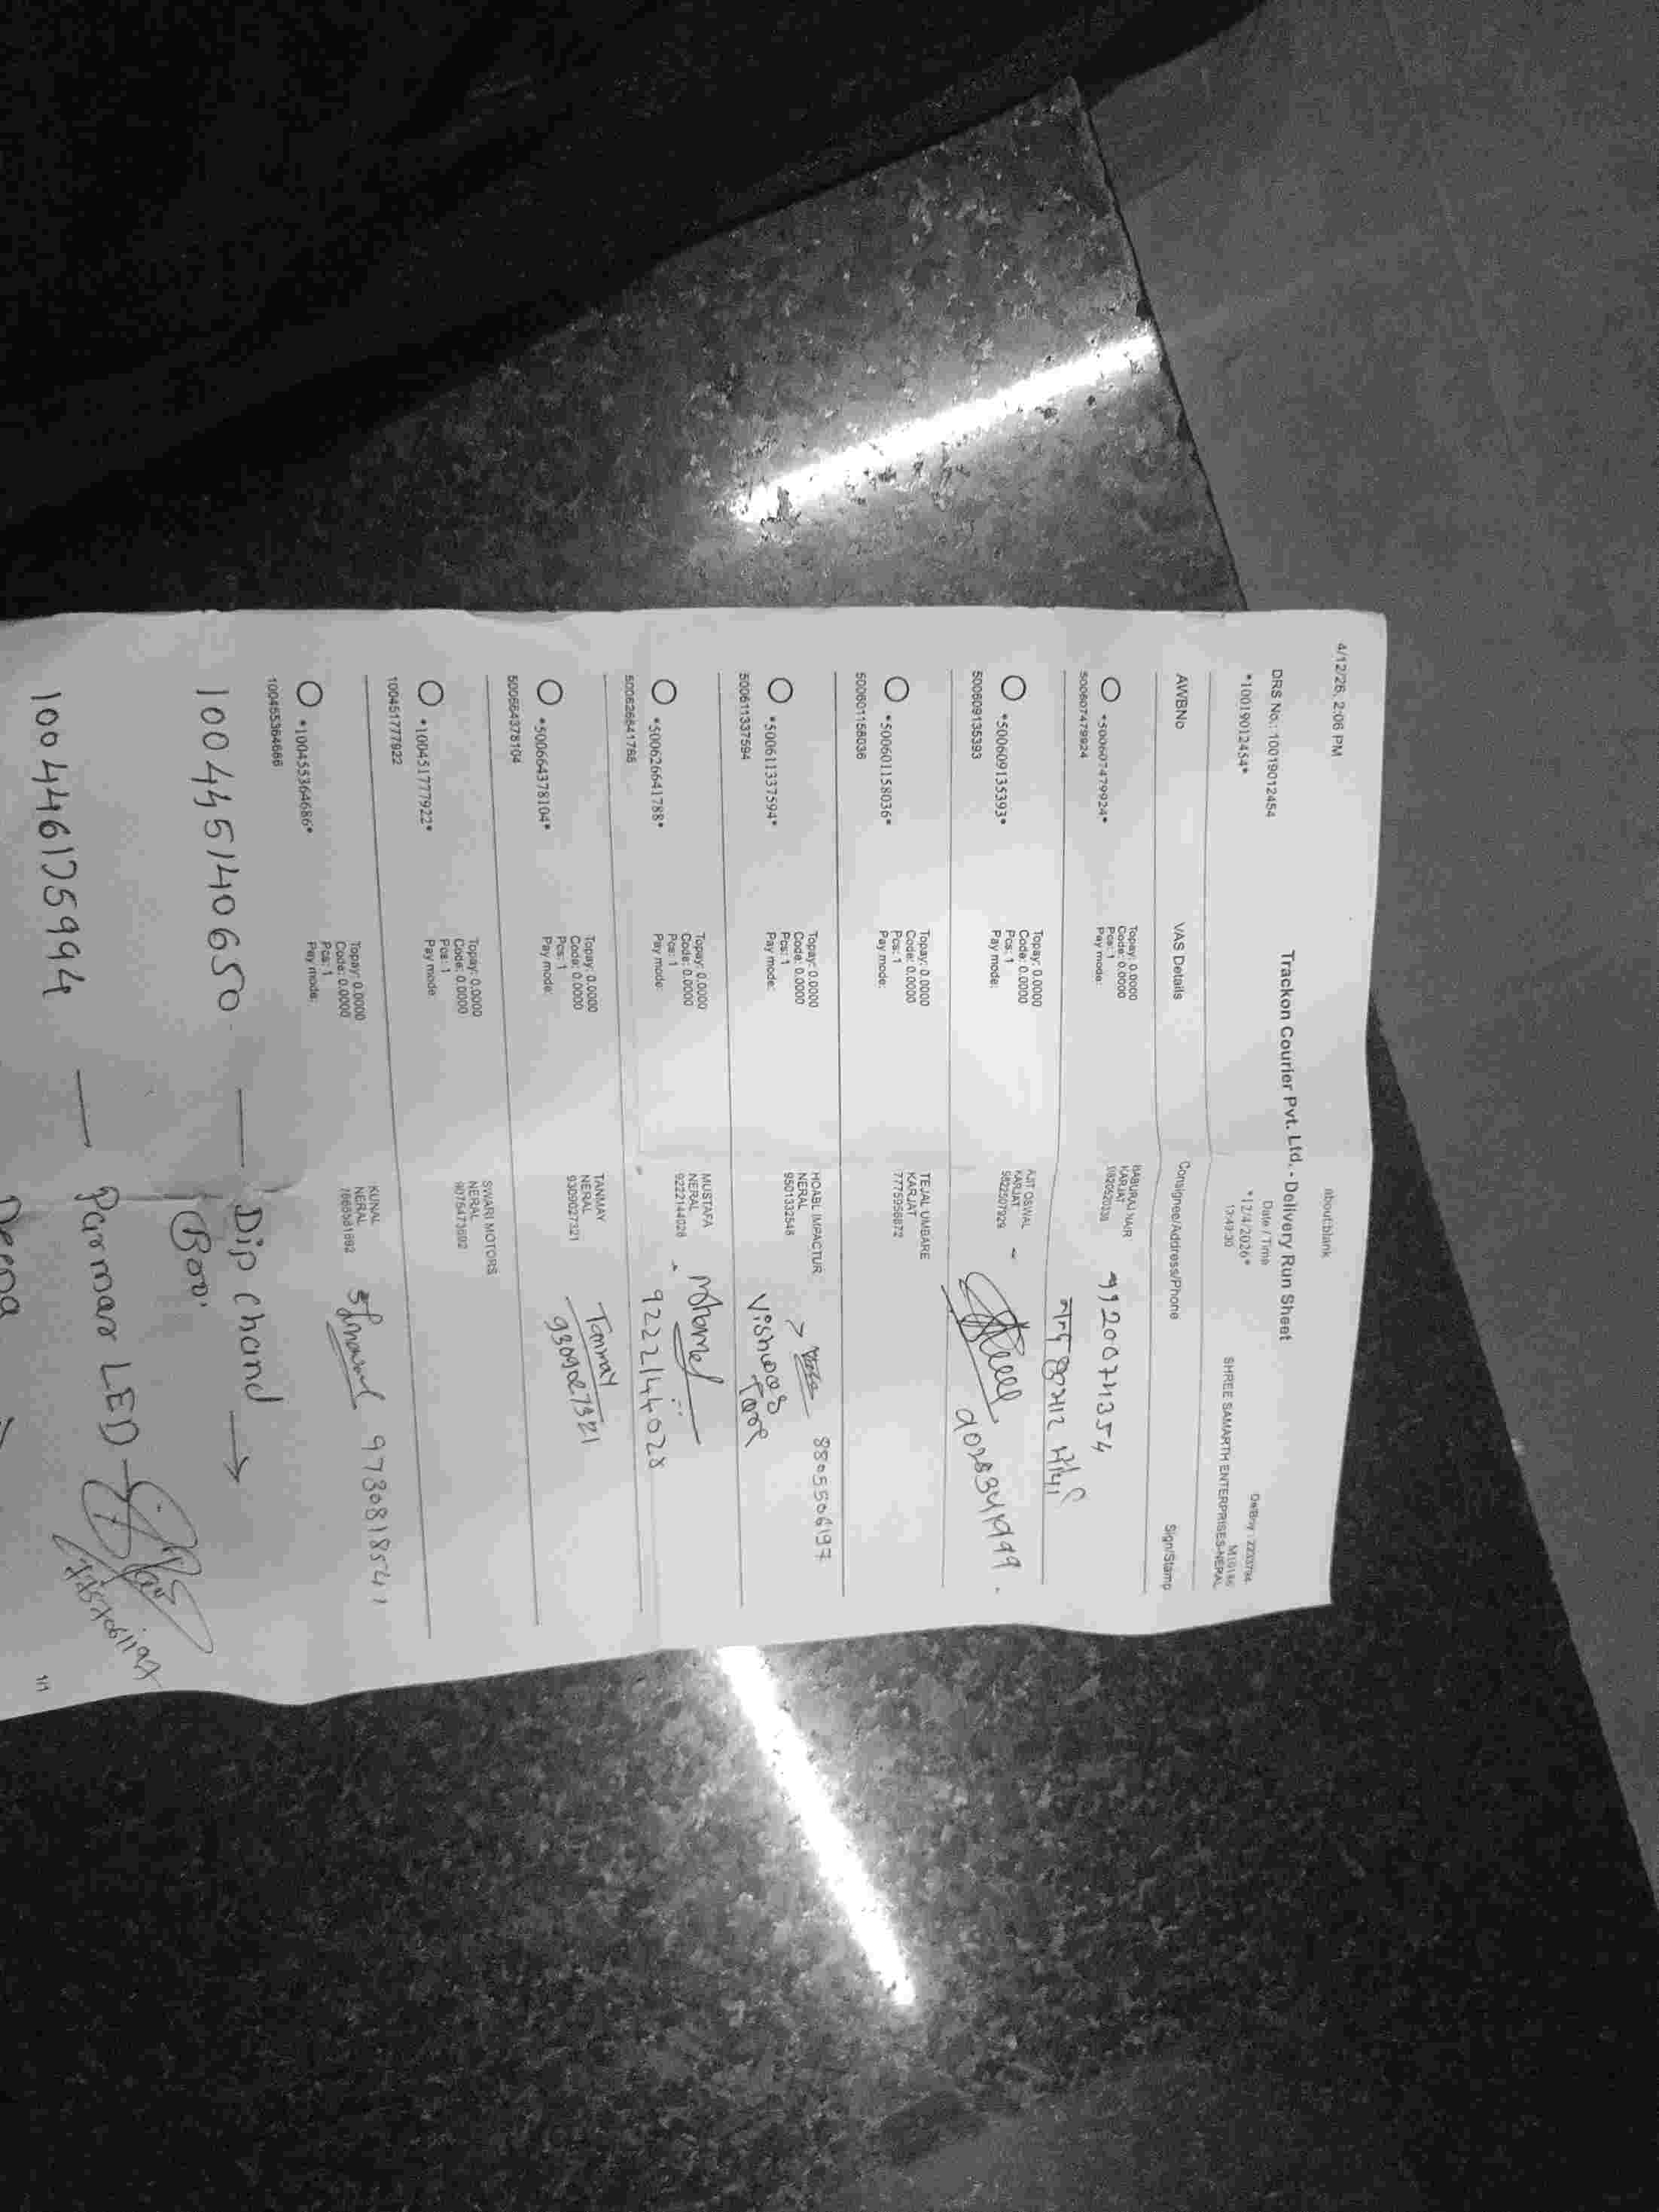 4/12/26, 2:06 PM
about:blank
Trackon Courier Pvt. Ltd. - Delivery Run Sheet
DRS No.: 10019012454
Date / Time
*10019012454*
*12/4/2026*
13:49:30
SHREE SAMARTH ENTERPRISES-NERAL
AWBNo
VAS Details
Consignee/Address/Phone
Sign/Stamp
*500607479924*
500607479924
Topay: 0.0000
Code: 0.0000
Pcs: 1
Pay mode:
BABURAJ NAIR
KARJAT
9920074354
*500609135393*
500609135393
Topay: 0.0000
Code: 0.0000
Pcs: 1
Pay mode:
AJIT OSWAL
KARJAT
*500601158036*
500601158036
Topay: 0.0000
Code: 0.0000
Pcs: 1
Pay mode:
TEJAL UMBARE
KARJAT
7775956872
*500611337594*
500611337594
Topay: 0.0000
Code: 0.0000
Pcs: 1
Pay mode:
HOABL IMPACTUR
NERAL
9501332548
8805506197
Vishwas
Tare
*500626641788*
500626641788
Topay: 0.0000
Code: 0.0000
Pcs: 1
Pay mode:
MUSTAFA
NERAL
9222144028
9222144028
*500664378104*
500664378104
Topay: 0.0000
Code: 0.0000
Pcs: 1
Pay mode:
TANMAY
NERAL
9309027321
Tanmay
9309027321
*100451777922*
100451777922
Topay: 0.0000
Code: 0.0000
Pcs: 1
Pay mode:
SWARI MOTORS
NERAL
*100455364686*
100455364686
Topay: 0.0000
Code: 0.0000
Pcs: 1
Pay mode:
KUNAL
NERAL
9730818541
100445140650 — Dip chand →
100446175994 — Parmar LED
1/1